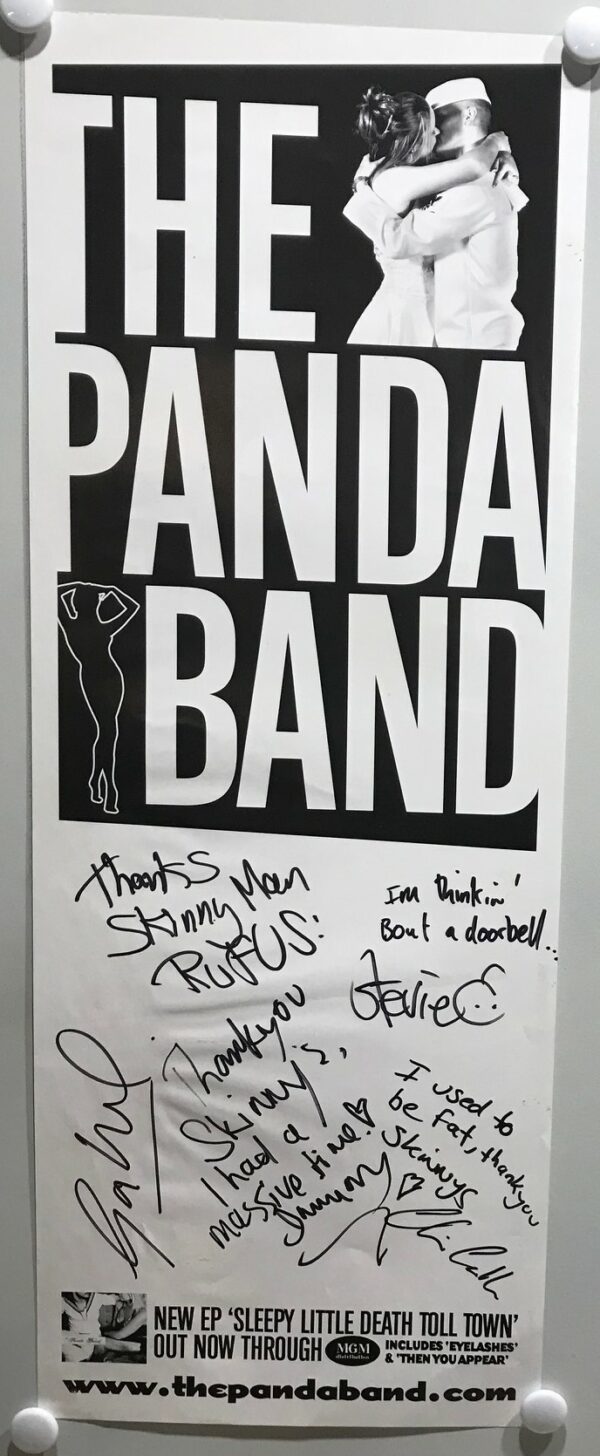 THE
PANDA
BAND
Thanks
Skinny Man
RUFUS!
Im thinkin'
Bout a doorbell...
Stevie
Thankyou
Skinny's,
I had a
massive time!
I used to
be fat, thankyou
Skinnys
NEW EP 'SLEEPY LITTLE DEATH TOLL TOWN'
OUT NOW THROUGH MGM distribution INCLUDES 'EYELASHES'
& 'THEN YOU APPEAR'
www.thepandaband.com